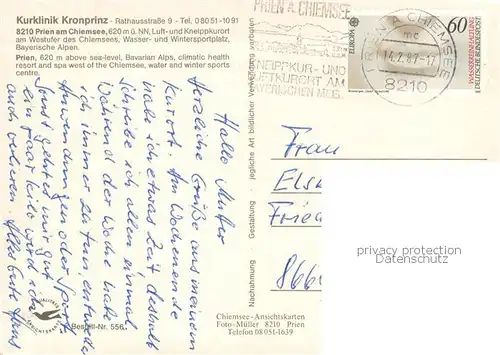 Kurklinik Kronprinz · Rathausstraße 9 - Tel. 0 80 51 - 10 91
8210 Prien am Chiemsee, 620 m ü. NN, Luft- und Kneippkurort
am Westufer des Chiemsees, Wasser- und Wintersportplatz,
Bayerische Alpen.
Prien, 620 m above sea-level, Bavarian Alps, climatic health
resort and spa west of the Chiemsee, water and winter sports
centre.
Hallo Mutter
Herzliche Grüße aus meinem
Kurort. Am Wochenende
habe ich etwas Zeit deshalb
schreibe ich allen einmal
Während der Woche habe
ich immer zu tun, entweder
Anwendungen oder Sport.
Sonst geht es mir gut
ein paar Kilo werd ich
auch verlieren. Alles Gute Hans
Bestell-Nr. 556
Nachahmung · Gestaltung · jegliche Art bildlicher Verwertung verboten
Chiemsee-Ansichtskarten
Foto-Müller 8210 Prien
Telefon 0 80 51-1639
PRIEN A CHIEMSEE
KNEIPPKUR- UND
LUFTKURORT AM
BAYERISCHEN MEER
PRIEN A CHIEMSEE
mc
14.2.87-17
8210
EUROPA
60
WASSERREINHALTUNG
DEUTSCHE BUNDESPOST
Frau
Els
Fried
866
privacy protection
ansichtskartenversand.com